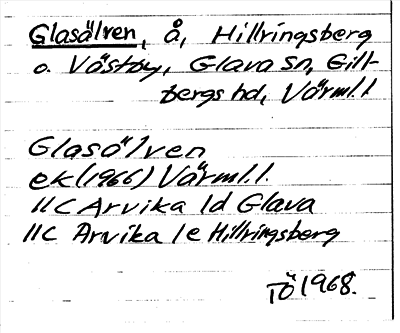 Glasälven, å, Hillringsberg
o. Västby, Glava sn, Gill-
bergs hd, Värml.l
Glasälven
ek(1966) Värml.l.
11C Arvika 1d Glava
11C Arvika 1e Hillringsberg
TÖ 1968.